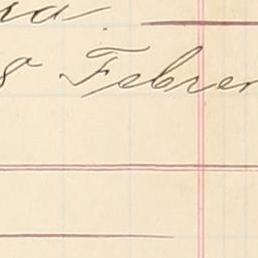 8 Febrer